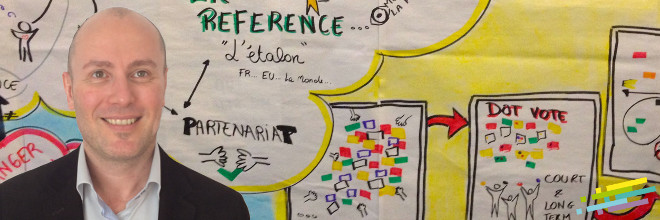 REFERENCE...
"L'étalon"
FR... EU... Le Monde...
PARTENARIAT
DOT VOTE
COURT
&
LONG
TERM